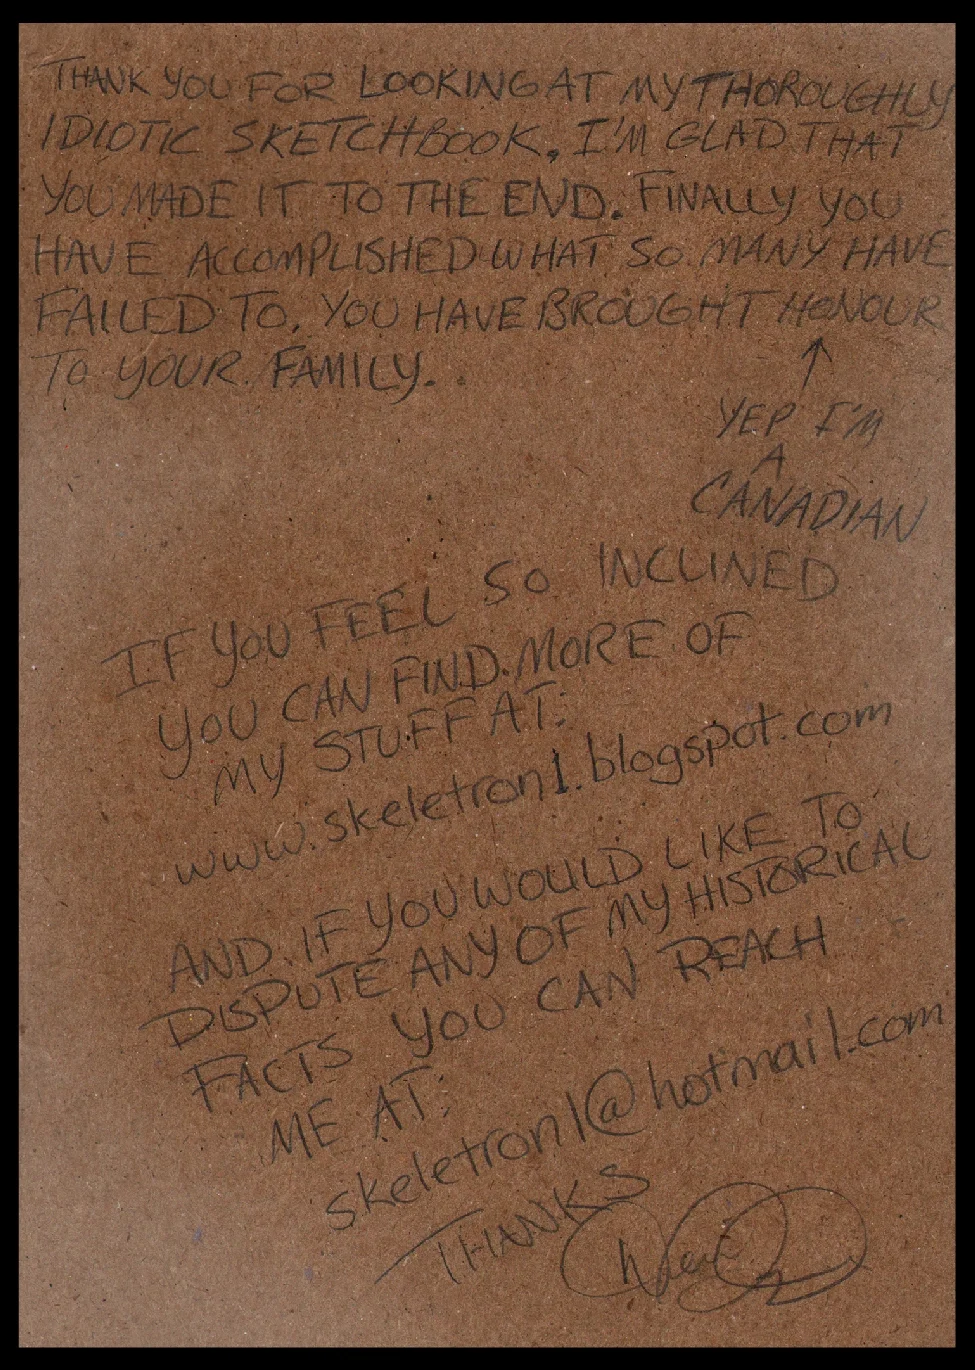 THANK YOU FOR LOOKING AT MY THOROUGHLY
IDIOTIC SKETCHBOOK. I'M GLAD THAT
YOU MADE IT TO THE END. FINALLY YOU
HAVE ACCOMPLISHED WHAT SO MANY HAVE
FAILED TO. YOU HAVE BROUGHT HONOUR
TO YOUR FAMILY.
YEP I'M
A
CANADIAN
IF YOU FEEL SO INCLINED
YOU CAN FIND MORE OF
MY STUFF AT:
www.skeletron1.blogspot.com
AND IF YOU WOULD LIKE TO
DISPUTE ANY OF MY HISTORICAL
FACTS YOU CAN REACH
ME AT:
skeletron1@hotmail.com
THANKS